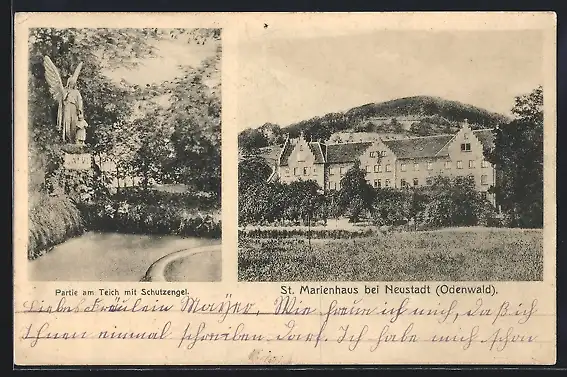 Partie am Teich mit Schutzengel.
St. Marienhaus bei Neustadt (Odenwald).
Liebes Fräulein Mayer, Wie freue ich mich, daß ich
Ihnen einmal schreiben darf. Ich habe mich schon